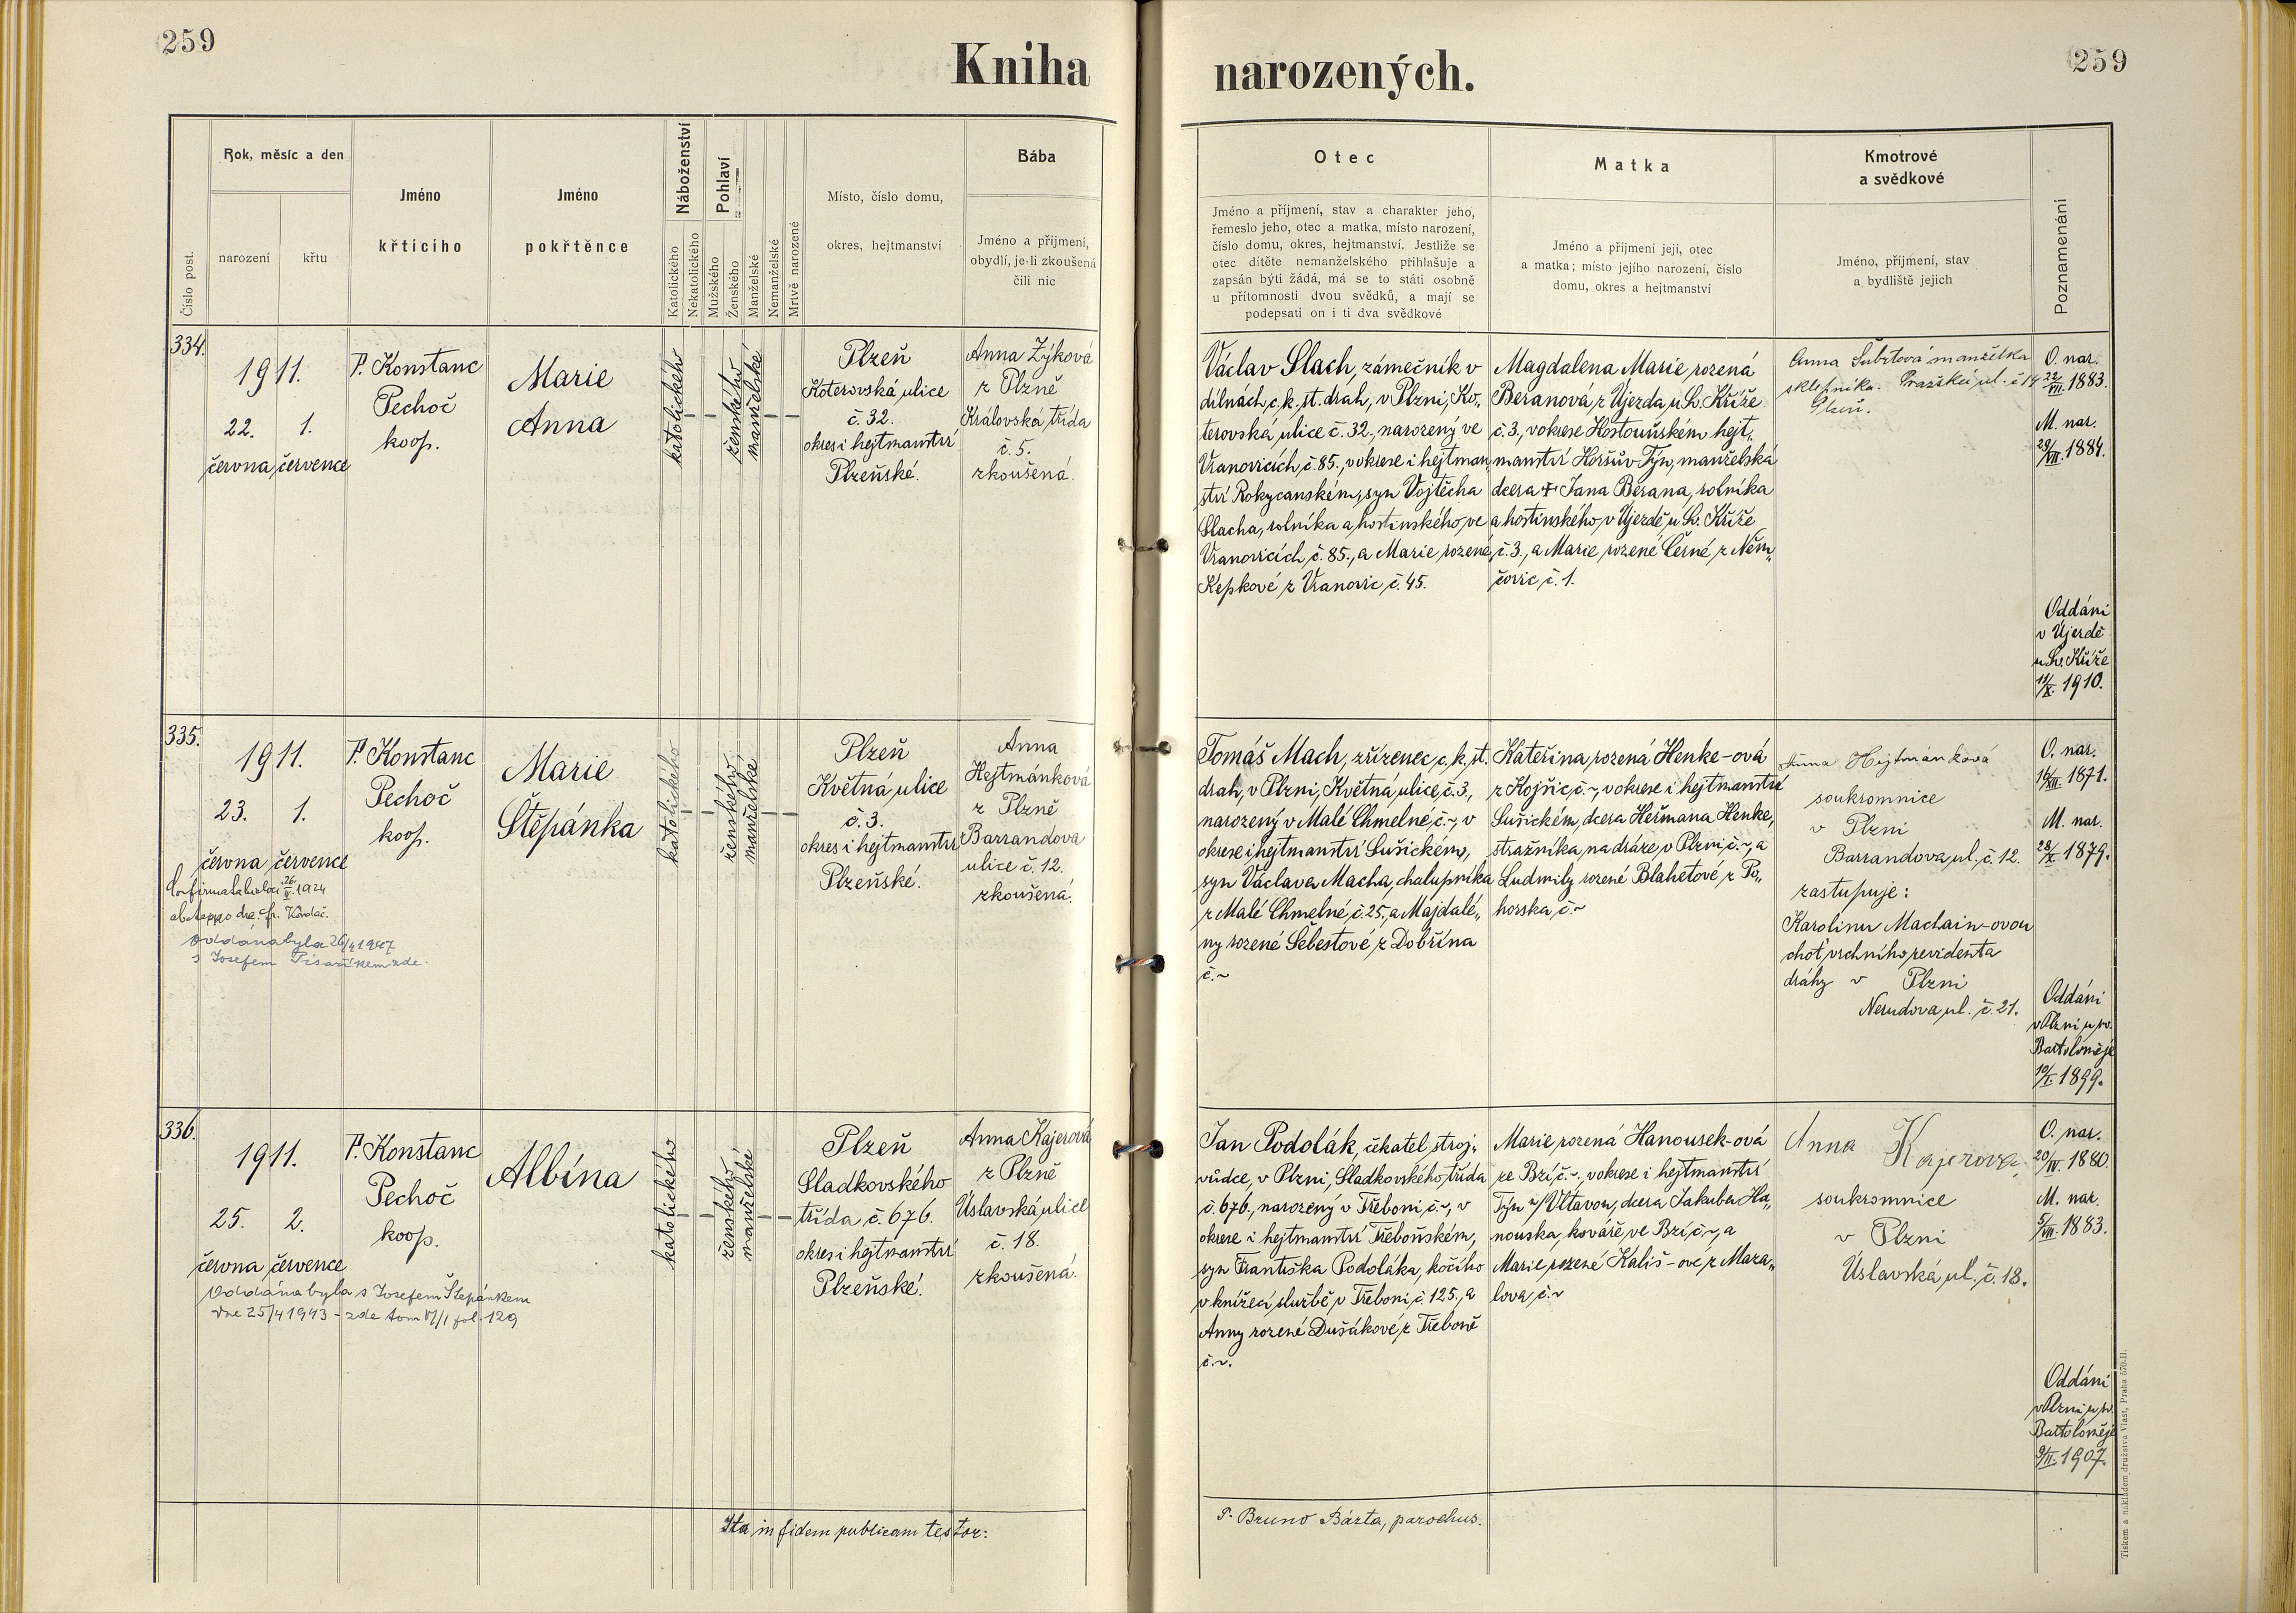 259
Kniha narozených.
259
Číslo post.
Rok, měsíc a den
narození
křtu
Jméno
křticího
Jméno
pokřtěnce
Náboženství
Katolického
Nekatolického
Pohlaví
Mužského
Ženského
Manželské
Nemanželské
Mrtvě narozené
Místo, číslo domu,
okres, hejtmanství
Bába
Jméno a příjmení,
obydlí, je-li zkoušená
čili nic
Otec
Jméno a příjmení, stav a charakter jeho,
řemeslo jeho, otec a matka, místo narození,
číslo domu, okres, hejtmanství. Jestliže se
otec dítěte nemanželského přihlašuje a
zapsán býti žádá, má se to státi osobně
u přítomnosti dvou svědků, a mají se
podepsati on i ti dva svědkové
Matka
Jméno a příjmení její, otec
a matka; místo jejího narození, číslo
domu, okres a hejtmanství
Kmotrové
a svědkové
Jméno, příjmení, stav
a bydliště jejich
Poznamenání
334.
1911.
22. 1.
června července
P. Konstanc
Pechoč
koop.
Marie
Anna
katolického
–
ženského
manželské
–
–
Plzeň
Koterovská ulice
č. 32.
okres i hejtmanství
Plzeňské.
Anna Zýková
z Plzně
Královská třída
č. 5.
zkoušená.
Václav Slach, zámečník v
dílnách c. k. st. drah, v Plzni, Ko„
terovská ulice č. 32., narozený ve
Vranovicích č. 85., v okrese i hejtman„
ství Rokycanském, syn Vojtěcha
Slacha, rolníka a hostinského, ve
Vranovicích č. 85., a Marie rozené
Kepkové z Vranovic č. 45.
Magdalena Marie, rozená
Beranová z Újezda u Sv. Kříže
č. 3., v okrese Hostouňském, hejt„
manství Horšův Týn, manželská
dcera † Jana Berana, rolníka
a hostinského, v Újezdě u Sv. Kříže
č. 3., a Marie rozené Černé z Něm„
čovic č. 1.
Anna Šubrtová manželka
sklepníka. Pražská ul. č 14
Plzeň.
O. nar.
22/VII. 1883.
M. nar.
29/VII. 1884.
Oddáni
v Újezdě
u Sv. Kříže
11/X. 1910.
335.
1911.
23. 1.
června července
26/V. 1924
oddána byla 26/4 1947
s Josefem Pisaříkem zde.
P. Konstanc
Pechoč
koop.
Marie
Štěpánka
katolického
–
ženského
manželské
–
–
Plzeň
Květná ulice
č. 3.
okres i hejtmanství
Plzeňské.
Anna
Hejtmánková
z Plzně
Barrandova
ulice č. 12.
zkoušená.
Tomáš Mach, zřízenec c. k. st.
drah, v Plzni, Květná ulice, č. 3.,
narozený v Malé Chmelné, č. ~, v
okrese i hejtmanství Sušickém,
syn Václava Macha, chalupníka
z Malé Chmelné, č. 25., a Majdalé„
ny rozené Šebestové z Dobřína
č. ~
Kateřina, rozená Henke-ová
z Kojšic, č. ~, v okrese i hejtmanství
Sušickém, dcera Heřmana Henke,
strážníka na dráze v Plzni, č. ~, a
Ludmily rozené Blahetové z Po„
horska, č. ~
Anna Hejtmánková
soukromnice
v Plzni
Barrandova, ul. č. 12.
zastupuje:
Karolinu Machain-ovou
choť vrchního revidenta
dráhy v Plzni
Nerudova, ul. č. 21.
O. nar.
16/XII. 1871.
M. nar.
28/X. 1879.
Oddáni
v Plzni u sv.
Bartoloměje
10/X. 1899.
336.
1911.
25. 2.
června července
Oddána byla s Josefem Štepánkem
dne 25/4 1943 - zde tom VI/1 fol. 129
P. Konstanc
Pechoč
koop.
Albína
katolického
–
ženského
manželské
–
–
Plzeň
Sladkovského
třída č. 676.
okres i hejtmanství
Plzeňské.
Anna Kajerová
z Plzně
Úslavská ulice
č. 18.
zkoušená.
Jan Podolák, čekatel stroj„
vůdce, v Plzni, Sladkovského, třída
č. 676., narozený v Třeboni, č. ~, v
okrese i hejtmanství Třeboňském,
syn Františka Podoláka, kočího
v knížecí službě v Třeboni, č. 125., a
Anny rozené Dušákové z Třeboně
č. ~.
Marie, rozená Hanousek-ová
ze Bzí, č. ~, v okrese i hejtmanství
Týn n/Vltavou, dcera Jakuba Ha„
nouska, kováře, ve Bzí, č. ~, a
Marie rozené Kališ-ové z Maza„
lova, č. ~
Anna Kajerova
soukromnice
v Plzni
Úslavská, ul. č. 18.
O. nar.
20/IV. 1880.
M. nar.
5/VII. 1883.
Oddáni
v Plzni u sv.
Bartoloměje
9/II. 1907.
Ita in fidem publicam testor:
P. Bruno Bárta, parochus.
Tiskem a nákladem družstva Vlast, Praha 570-II.